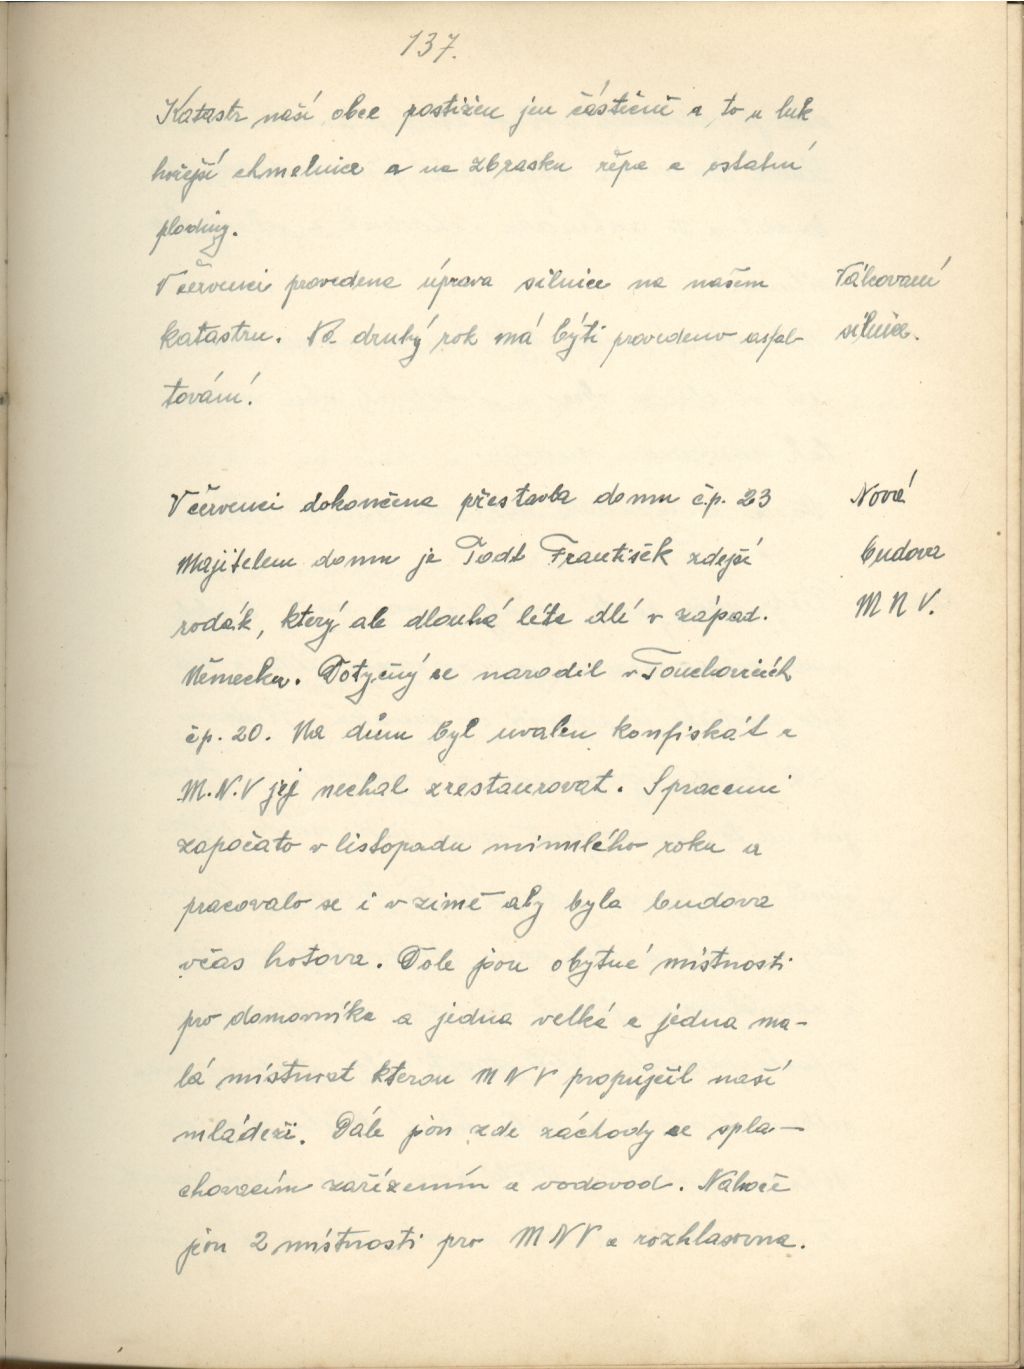 137.
Katastr naší obce postižen jen částečně a to u luk
hořejší chmelnice a na Zbrasku řepa a ostatní
plodiny.
V červenci provedena úprava silnice na našem
Válcovaní
katastru. Na druhý rok má býti provedeno asfal-
silnice.
tování.
V červenci dokončena přestavba domu č.p. 23
Nová
Majitelem domu je Todt František zdejší
budova
rodák, který ale dlouhá léta dlí v západ.
M N V.
Německu. Dotyčný se narodil v Touchovicích
čp. 20. Na dům byl uvalen konfiskát a
M.N.V jej nechal zrestaurovat. S pracemi
započato v listopadu minulého roku a
pracovalo se i v zimě aby byla budova
včas hotova. Dole jsou obytné místnosti
pro domovníka a jedna velká a jedna ma-
lá místnost kterou MNV propůjčil naší
mládeži. Dále jsou zde záchody se spla-
chovacím zařízením a vodovod. Nahoře
jsou 2 místnosti pro MNV a rozhlasovna.